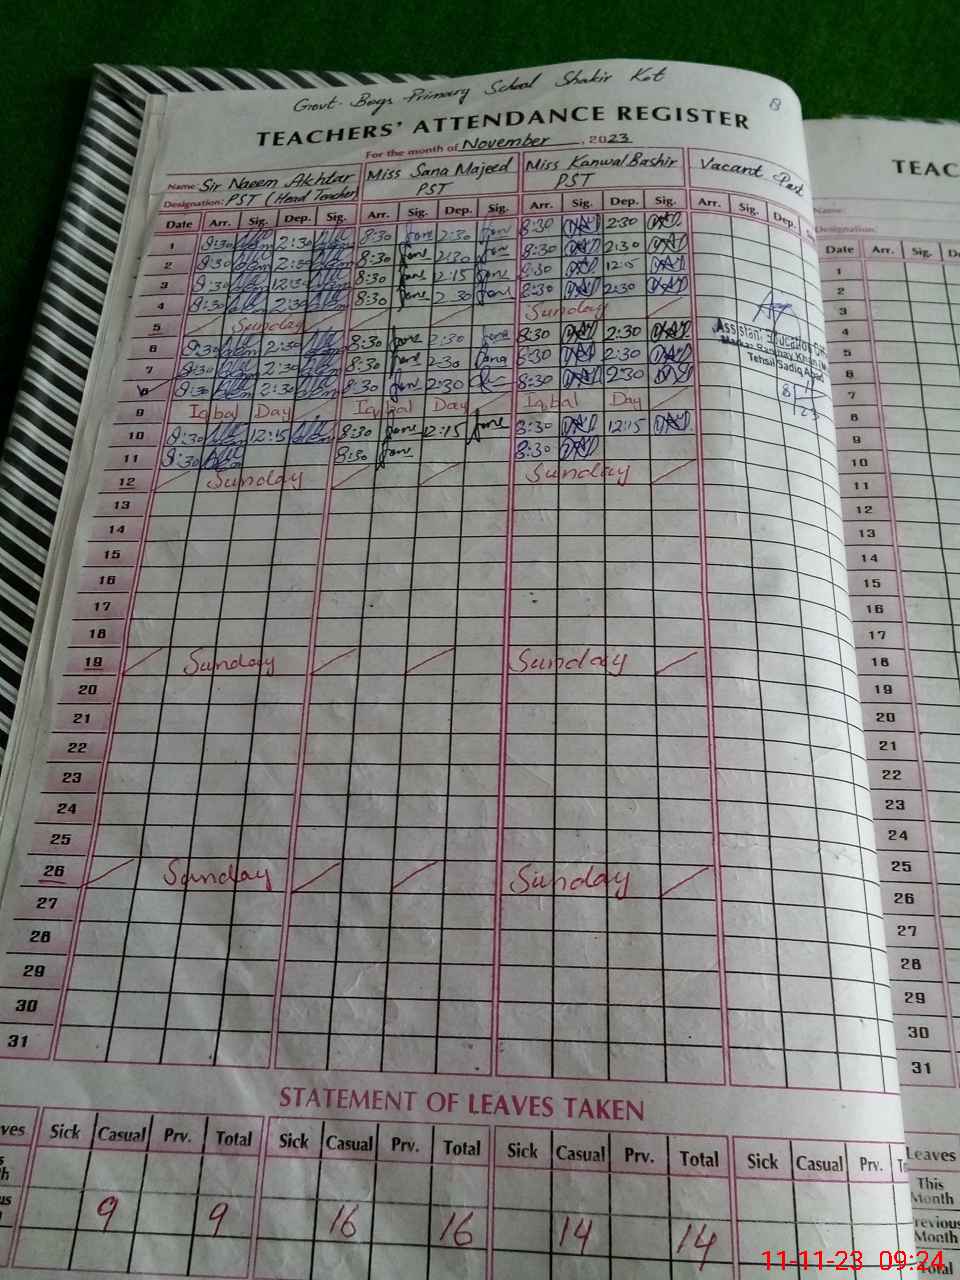 Govt. Boys Primary School Shakir Kot
TEACHERS' ATTENDANCE REGISTER
For the month of November, 2023
Name: Sir Naeem Akhtar Miss Sana Majeed Miss Kanwal Bashir Vacant Post
Designation: PST (Head Teacher) PST PST
Date Arr. Sig. Dep. Sig. Arr. Sig. Dep. Sig. Arr. Sig. Dep. Sig. Arr. Sig. Dep.
1 8:30 2:30 8:30 2:30 8:30 2:30
2 8:30 2:30 8:30 2:30 8:30 2:30
3 8:30 12:30 8:30 2:15 8:30 12:15
4 8:30 2:30 8:30 2:30 8:30 2:30
5 Sunday Sunday
6 8:30 2:30 8:30 2:30 8:30 2:30
7 8:30 2:30 8:30 2:30 8:30 2:30
8:30 2:30 8:30 2:30 8:30 2:30
9 Iqbal Day Iqbal Day Iqbal Day
10 8:30 12:15 8:30 12:15 8:30 12:15
11 8:30 8:30 8:30
12 Sunday Sunday
13
14
15
16
17
18
19 Sunday Sunday
20
21
22
23
24
25
26 Sunday Sunday
27
28
29
30
31
Assistant Education
Tehsil Sadiq Abad
STATEMENT OF LEAVES TAKEN
Sick Casual Prv. Total Sick Casual Prv. Total Sick Casual Prv. Total Sick Casual Prv.
9 9 16 16 14 14
TEAC
Name:
Designation:
Date Arr. Sig.
1
2
3
4
5
6
7
8
9
10
11
12
13
14
15
16
17
18
19
20
21
22
23
24
25
26
27
28
29
30
31
Leaves
This
Month
Month
11-11-23 09:24